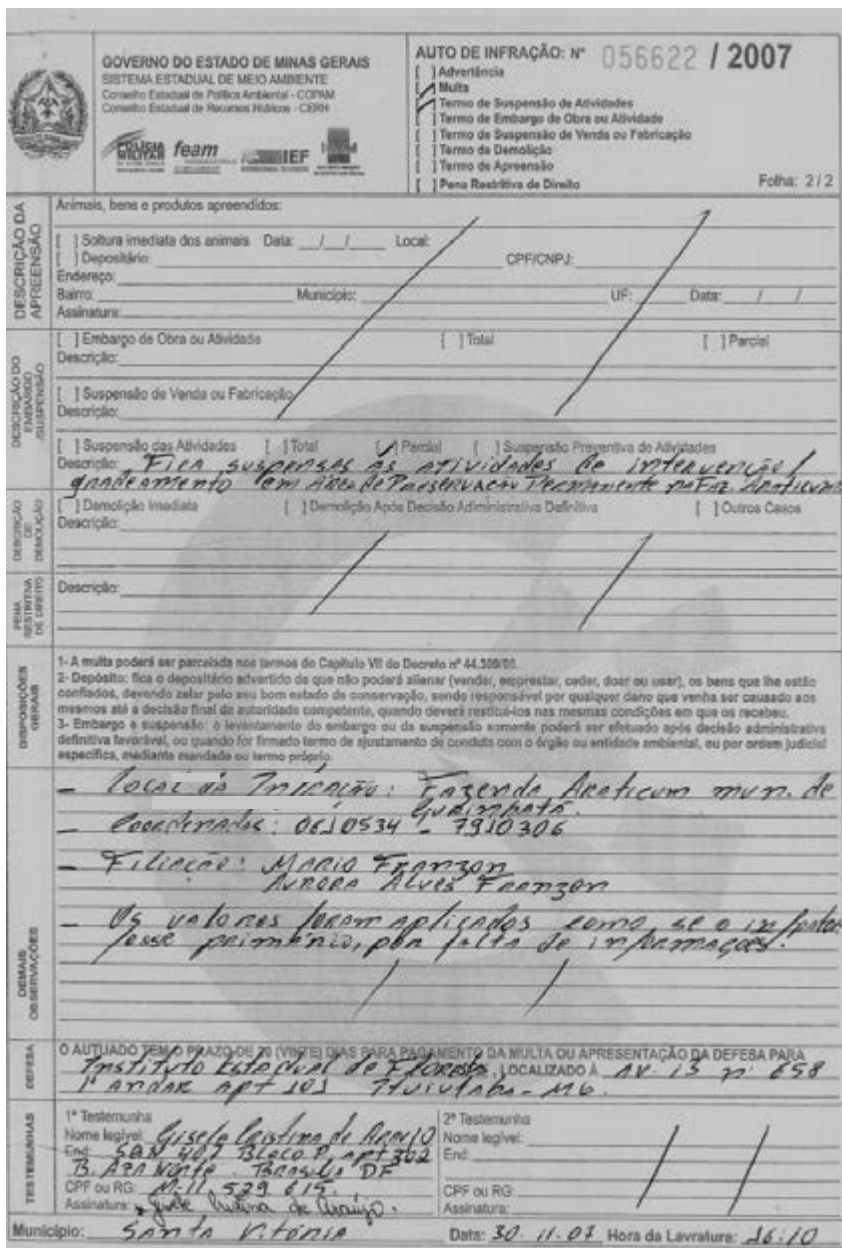 GOVERNO DO ESTADO DE MINAS GERAIS
SISTEMA ESTADUAL DE MEIO AMBIENTE
Conselho Estadual de Política Ambiental - COPAM
Conselho Estadual de Recursos Hídricos - CERH
POLÍCIA MILITAR feam IEF
AUTO DE INFRAÇÃO: Nº 056622 / 2007
[ ] Advertência
[ ] Multa
[ ] Termo de Suspensão de Atividades
[ ] Termo de Embargo de Obra ou Atividade
[ ] Termo de Suspensão de Venda ou Fabricação
[ ] Termo de Demolição
[ ] Termo de Apreensão
[ ] Pena Restritiva de Direito
Folha: 2/2
DESCRIÇÃO DA APREENSÃO
Animais, bens e produtos apreendidos:
[ ] Soltura imediata dos animais Data: __/__/____ Local:
[ ] Depositário: CPF/CNPJ:
Endereço:
Bairro: Município: UF: Data: / /
Assinatura:
DESCRIÇÃO DO EMBARGO /SUSPENSÃO
[ ] Embargo de Obra ou Atividade [ ] Total [ ] Parcial
Descrição:
[ ] Suspensão de Venda ou Fabricação
Descrição:
[ ] Suspensão das Atividades [ ] Total [/] Parcial [ ] Suspensão Preventiva de Atividades
Descrição: Fica suspensas as atividades de intervenção/
gradeamento em Área de Preservação Permanente na Faz. Araticum
DESCRIÇÃO DE DEMOLIÇÃO
[ ] Demolição Imediata [ ] Demolição Após Decisão Administrativa Definitiva [ ] Outros Casos
Descrição:
PENA RESTRITIVA DE DIREITO
Descrição:
DISPOSIÇÕES GERAIS
1- A multa poderá ser parcelada nos termos do Capítulo VII do Decreto nº 44.309/06.
2- Depósito: fica o depositário advertido de que não poderá alienar (vender, emprestar, ceder, doar ou usar), os bens que lhe estão
confiados, devendo zelar pelo seu bom estado de conservação, sendo responsável por qualquer dano que venha ser causado aos
mesmos até a decisão final da autoridade competente, quando deverá restituí-los nas mesmas condições em que os recebeu.
3- Embargo e suspensão: o levantamento do embargo ou da suspensão somente poderá ser efetuado após decisão administrativa
definitiva favorável, ou quando for firmado termo de ajustamento de conduta com o órgão ou entidade ambiental, ou por ordem judicial
específica, mediante mandado ou termo próprio.
DEMAIS OBSERVAÇÕES
- Local da Infração: Fazenda Araticum mun. de
- Coordenadas: 0610534 - 7910306
- Filiação: Mario Franzon
Aurora Alves Franzon
- Os valores foram aplicados como se o infrator
fosse primário, por falta de informações.
DEFESA
O AUTUADO TEM O PRAZO DE 20 (VINTE) DIAS PARA PAGAMENTO DA MULTA OU APRESENTAÇÃO DA DEFESA PARA
Instituto Estadual de Floresta, LOCALIZADO À Av- 13 nº 658
1º andar apt 101 Ituiutaba - MG.
TESTEMUNHAS
1ª Testemunha
Nome legível: Gisele Cristina de Araujo
End: 402 Bloco P, apt 302
B. Aza Norte Brasília DF
CPF ou RG: M-11.529.615.
Assinatura: Gisele Cristina de Araújo.
2ª Testemunha
Nome legível:
End:
CPF ou RG:
Assinatura:
Município: Santa Vitória Data: 30-11-07 Hora da Lavratura: 16:10